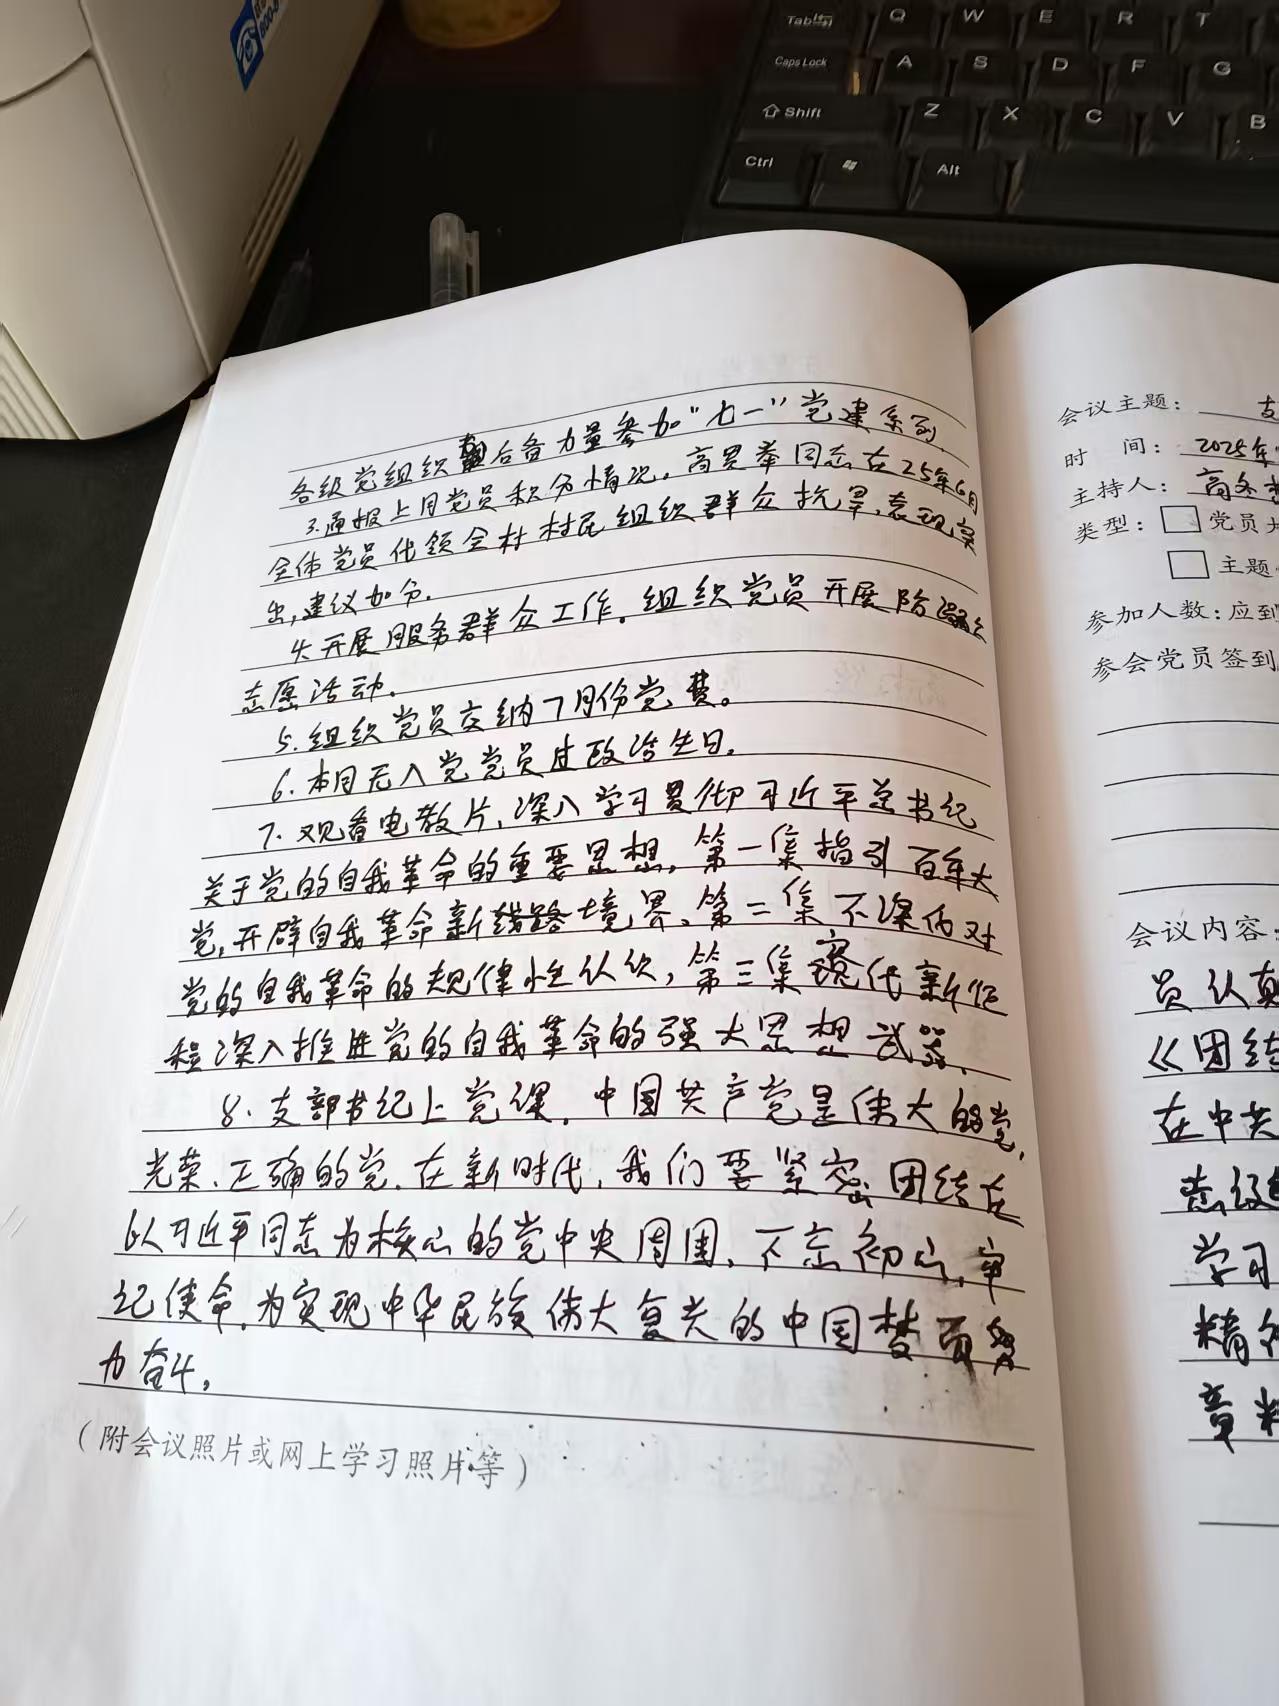 Tab Q W E R T
Caps Lock A S D F G
Shift Z X C V B
Ctrl Alt
各级党组织后备力量参加“七一”党建系列
3.通报上月党员积分情况。高贯举同志在25年6月
全体党员代领全村村民组织群众抗旱,表现突
出,建议加分.
4.开展服务群众工作.组织党员开展防
志愿活动.
5.组织党员交纳7月份党费。
6.本月无入党党员过政治生日.
7.观看电教片,深入学习贯彻习近平总书记
关于党的自我革命的重要思想,第一集指引百年大
党,开辟自我革命新境界、第二集不深化对
党的自我革命的规律性认识,第三集代新征
程深入推进党的自我革命的强大思想武器.
8.支部书记上党课.中国共产党是伟大的党,
光荣、正确的党.在新时代,我们要紧密团结在
以习近平同志为核心的党中央周围,不忘初心,牢
记使命.为实现中华民族伟大复兴的中国梦而努
力奋斗。
(附会议照片或网上学习照片等)
会议主题: 支
时 间: 2025年
主持人: 高
类型: □ 党员大
□ 主题
参加人数:应到
参会党员签到
会议内容:
员认真
《团结
在中共
志
学习
精神
章精